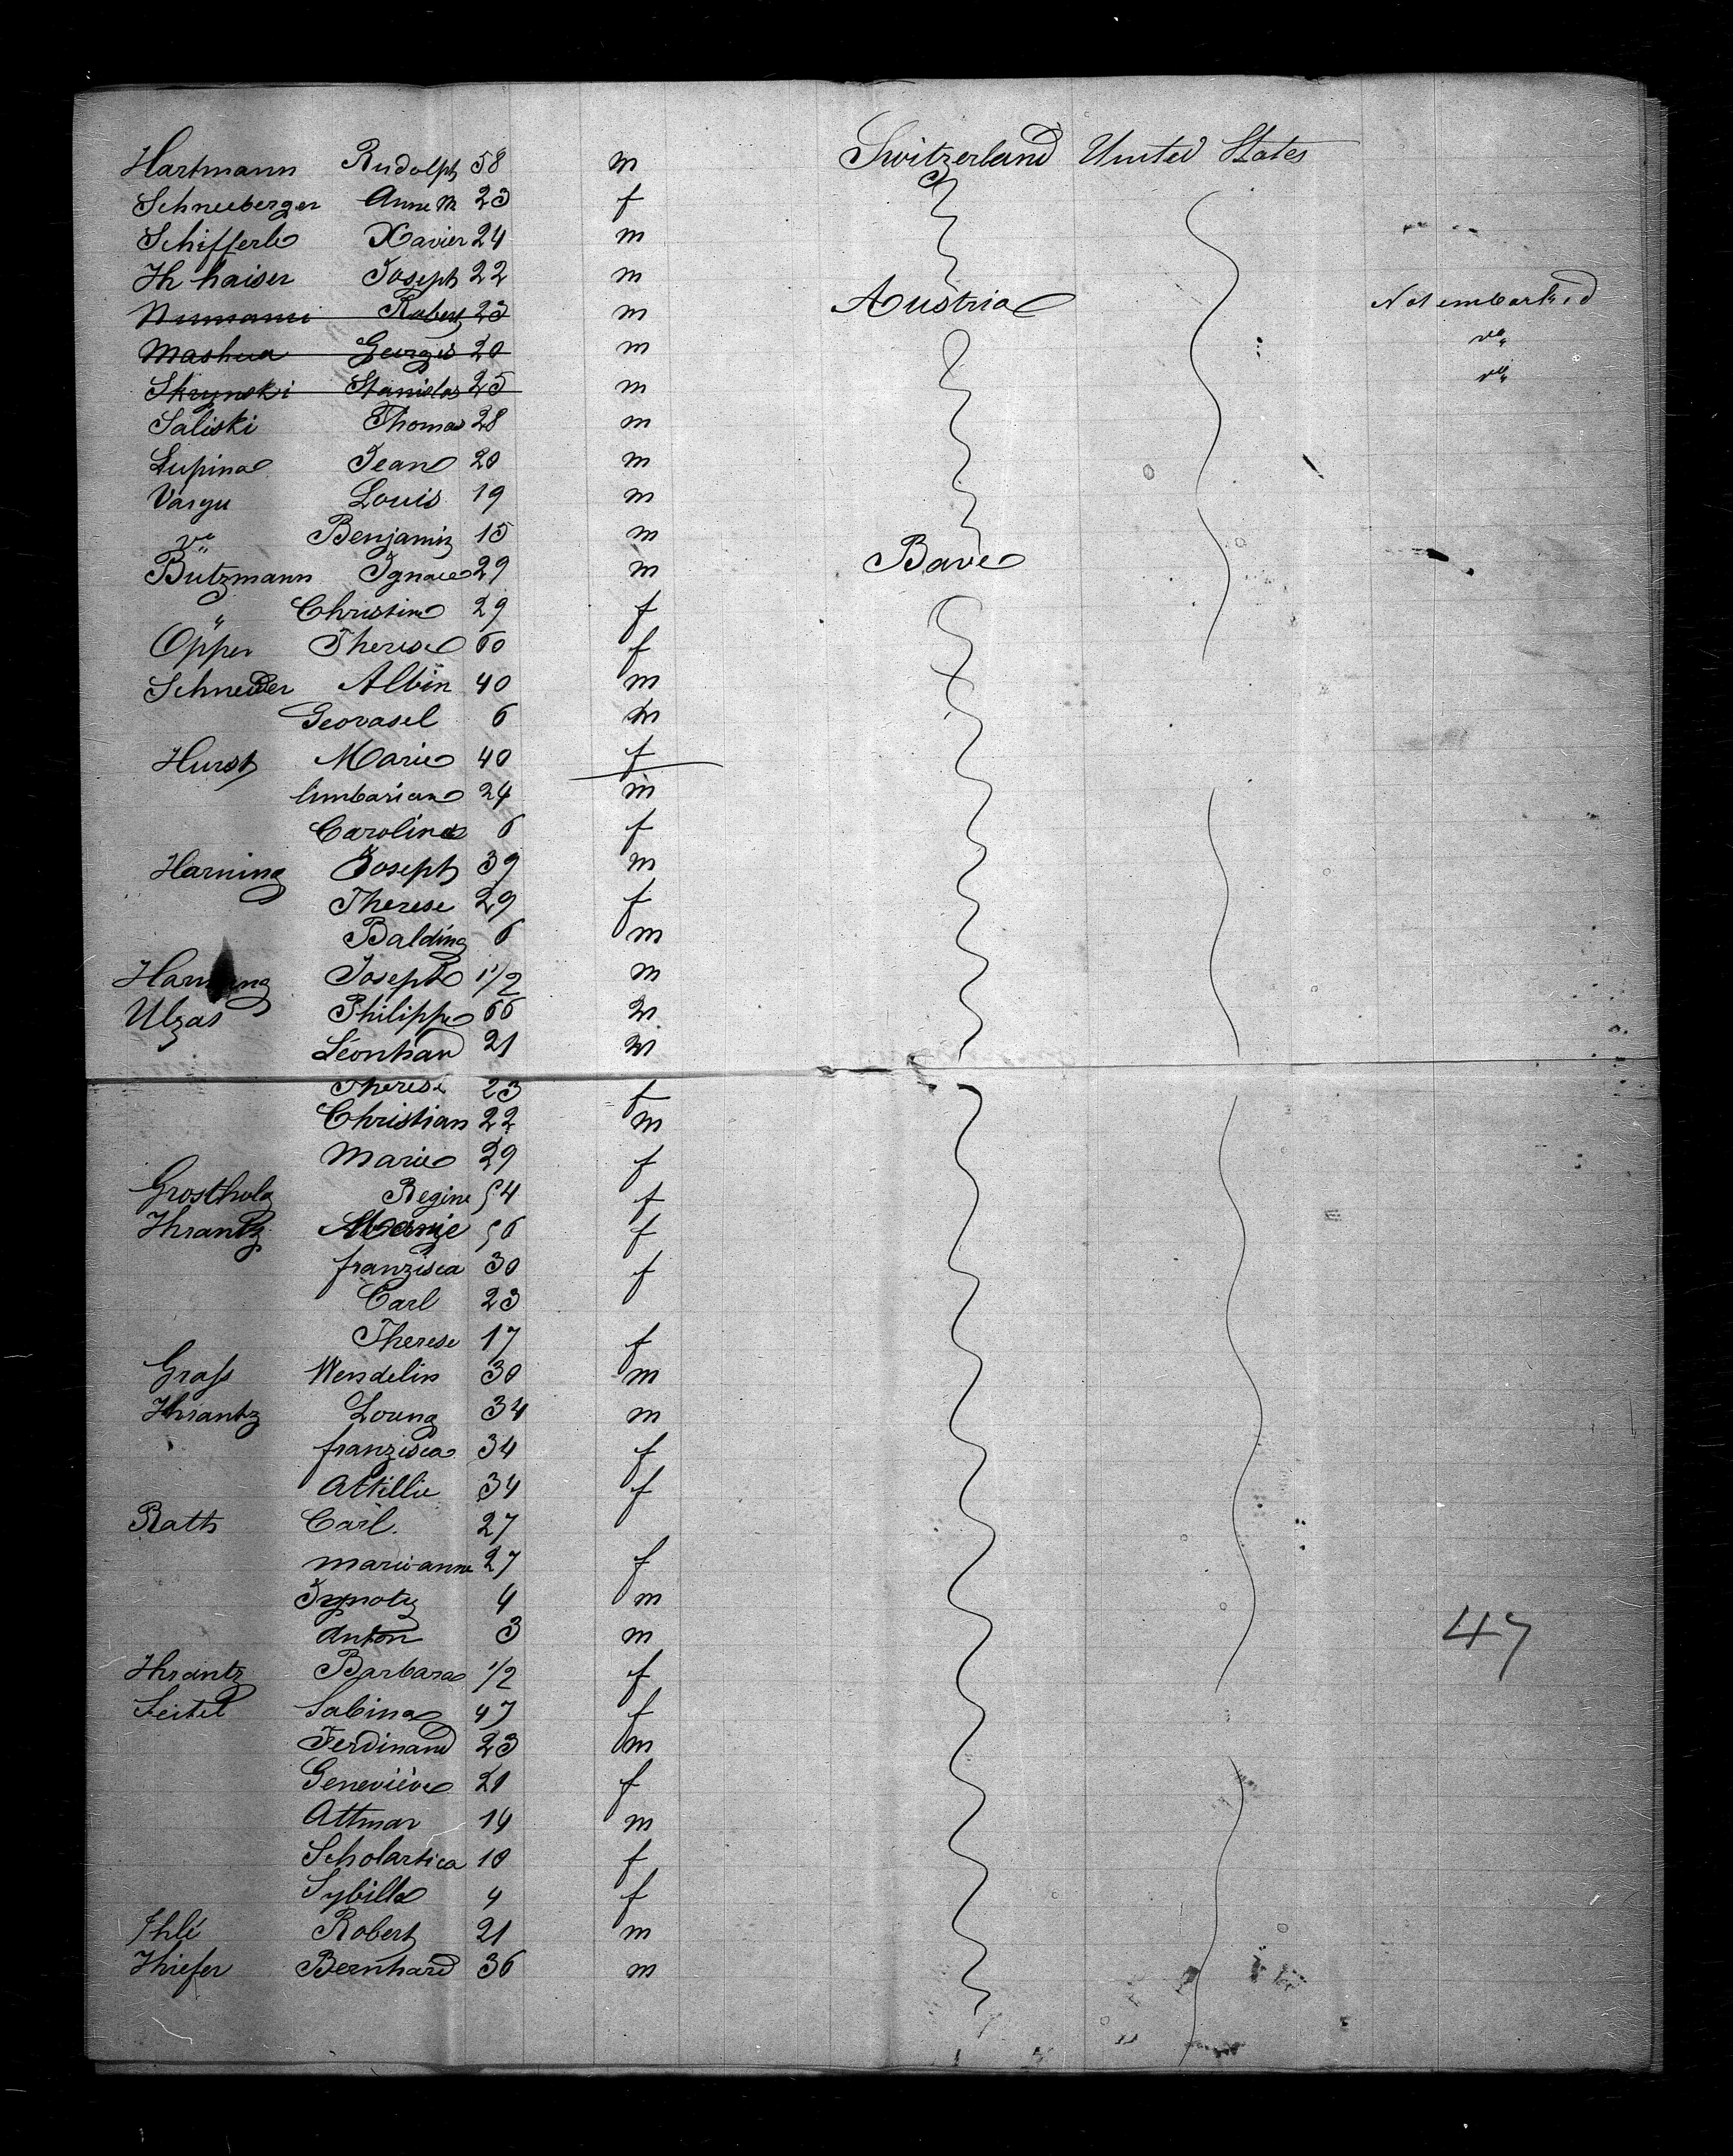 Hartmann Rudolph 58 m Switzerland United States
Schneeberger Anne M 23 f
Schifferle Xavier 24 m
Th haiser Joseph 22 m
Robert 23 m Austria Not embarked
Mashua Georges 20 m
Skrynski Stanislas 25 m
Saliski Thomas 28 m
Lupina Jean 20 m
Vargu Louis 19 m
Benjamin 15 m
Butzmann Ignace 29 m Bave
" Christine 29 f
Opper Therese 60 f
Schneider Albin 40 m
6 m
Hurst Marie 40 f
24 m
Caroline 6 f
Harning Joseph 39 m
Therese 29 f
Balding 6 m
Harning Joseph 1 1/2 m
Ulzas Philippe 66 m
Léonhard 21 m
Therese 23 f
Christian 22 m
Marie 29 f
Grostholz Regine 54 f
Hrantz 56 f
franzisca 30 f
Carl 23
Therese 17 f
Grass Wendelin 30 m
Hrantz 34 m
franzisca 34 f
Attillie 34 f
Rath Carl. 27
marie-anne 27 f
4 m
Anton 3 m 47
Hrantz Barbara 1/2 f
Seitel Sabina 47 f
Ferdinand 23 m
Geneviève 21 f
Attmar 14 m
Scholastica 10 f
Sybilla 4 f
Ihlé Robert 21 m
Hiefer Bernhard 36 m